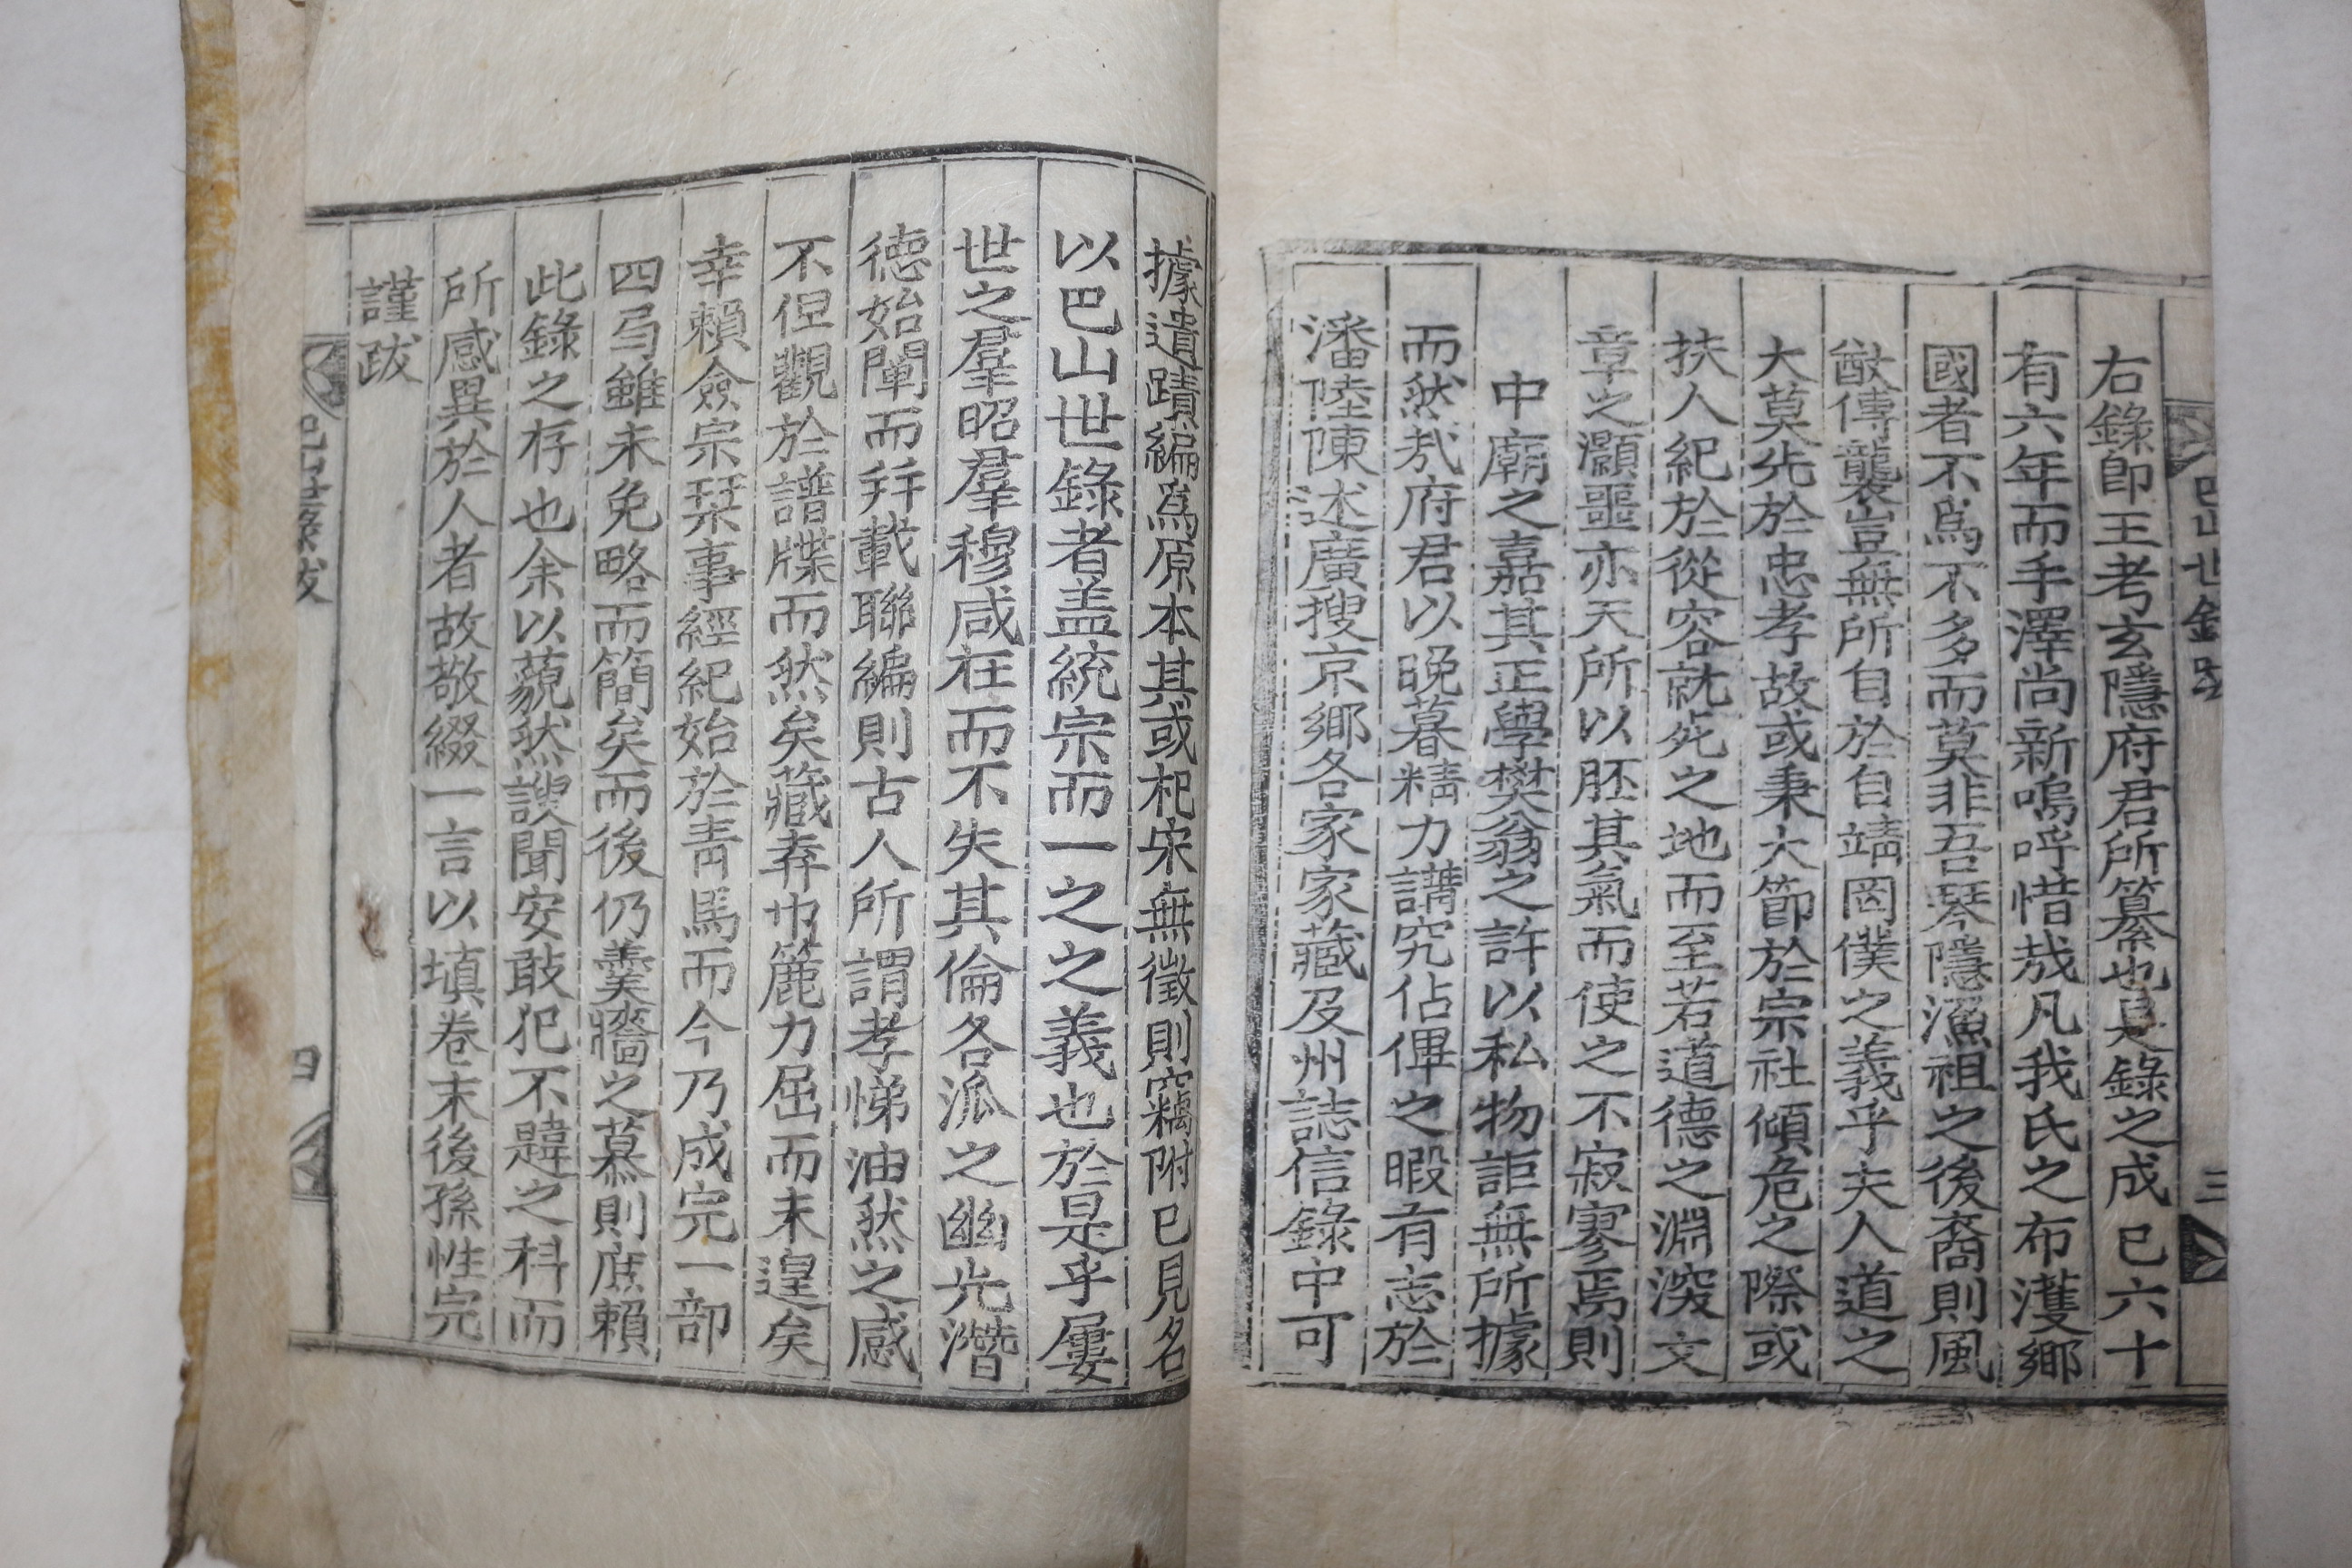 巴山世錄跋
三
右錄卽王考玄隱府君所纂也是錄之成已六十
有六年而手澤尚新嗚呼惜哉凡我氏之布濩鄉
國者不爲不多而莫非吾琴隱漁祖之後裔則風
猷傳襲豈無所自於自靖罔僕之義乎夫人道之
大莫先於忠孝故或秉大節於宗社傾危之際或
扶人紀於從容就死之地而至若道德之淵深文
章之灝噩亦天所以胚其氣而使之不寂寥焉則
中廟之嘉其正學樊翁之許以私物詎無所據
而然哉府君以晩暮精力講究佔俾之暇有志於
潘陸陳述廣搜京鄉各家家藏及州誌信錄中可
據遺蹟編爲原本其或杞宋無徵則竊附已見名
以巴山世錄者盖統宗而一之之義也於是乎屢
世之羣昭羣穆咸在而不失其倫各派之幽光潛
德始闡而幷載聯編則古人所謂孝悌油然之感
不但觀於譜牒而然矣藏弆巾簏力屈而未遑矣
幸賴僉宗栞事經紀始於靑馬而今乃成完一部
四弓雖未免略而簡矣而後仍羹墻之慕則庶賴
此錄之存也余以藐然謏聞安敢犯不韙之科而
所感異於人者故敬綴一言以塡卷末後孫性完
謹跋
巴山世錄跋
四